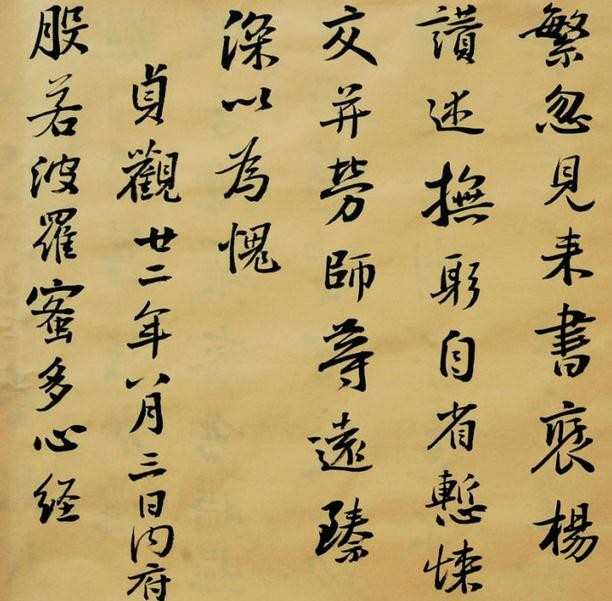 繁忽見来書褒楊
讃述撫躬自省慙悚
交并勞師等遠臻
深以為愧
貞觀廿二年八月三日内府
般若波羅蜜多心経